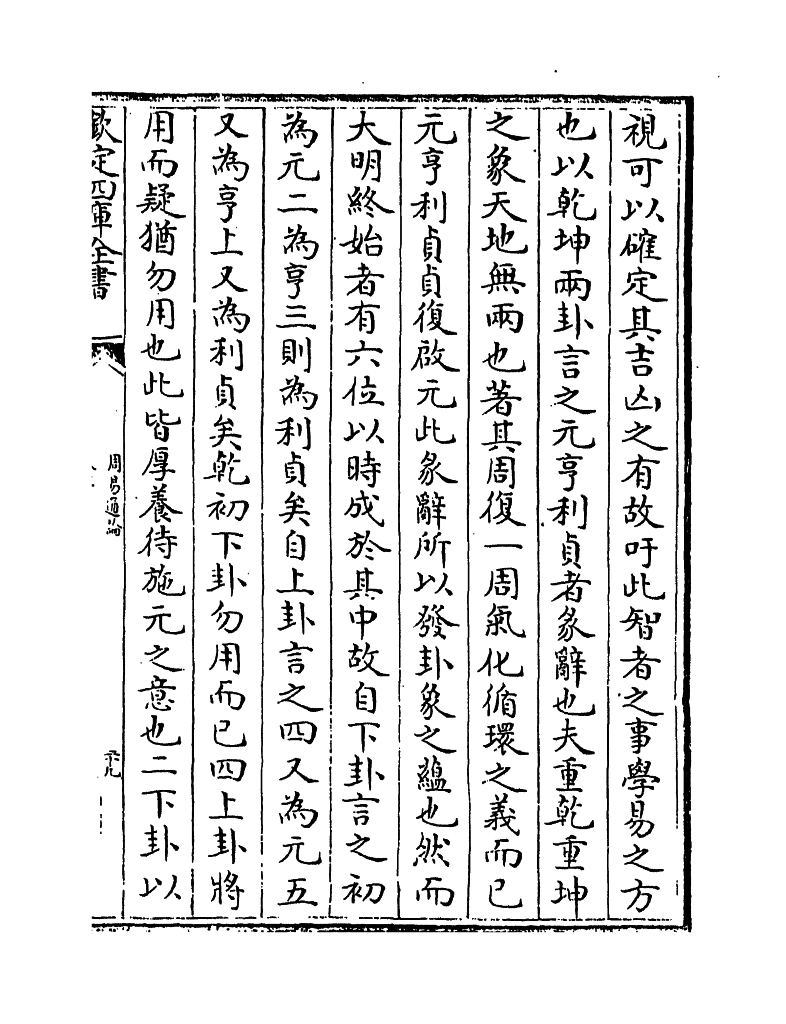 視可以確定其吉凶之有故吁此智者之事學易之方
也以乾坤兩卦言之元亨利貞者彖辭也夫重乾重坤
之象天地無兩也著其周復一周氣化循環之義而已
元亨利貞貞復啟元此彖辭所以發卦象之蘊也然而
大明終始者有六位以時成於其中故自下卦言之初
為元二為亨三則為利貞矣自上卦言之四又為元五
又為亨上又為利貞矣乾初下卦勿用而已四上卦將
用而疑猶勿用也此皆厚養待施元之意也二下卦以
欽定四庫全書
周易通論